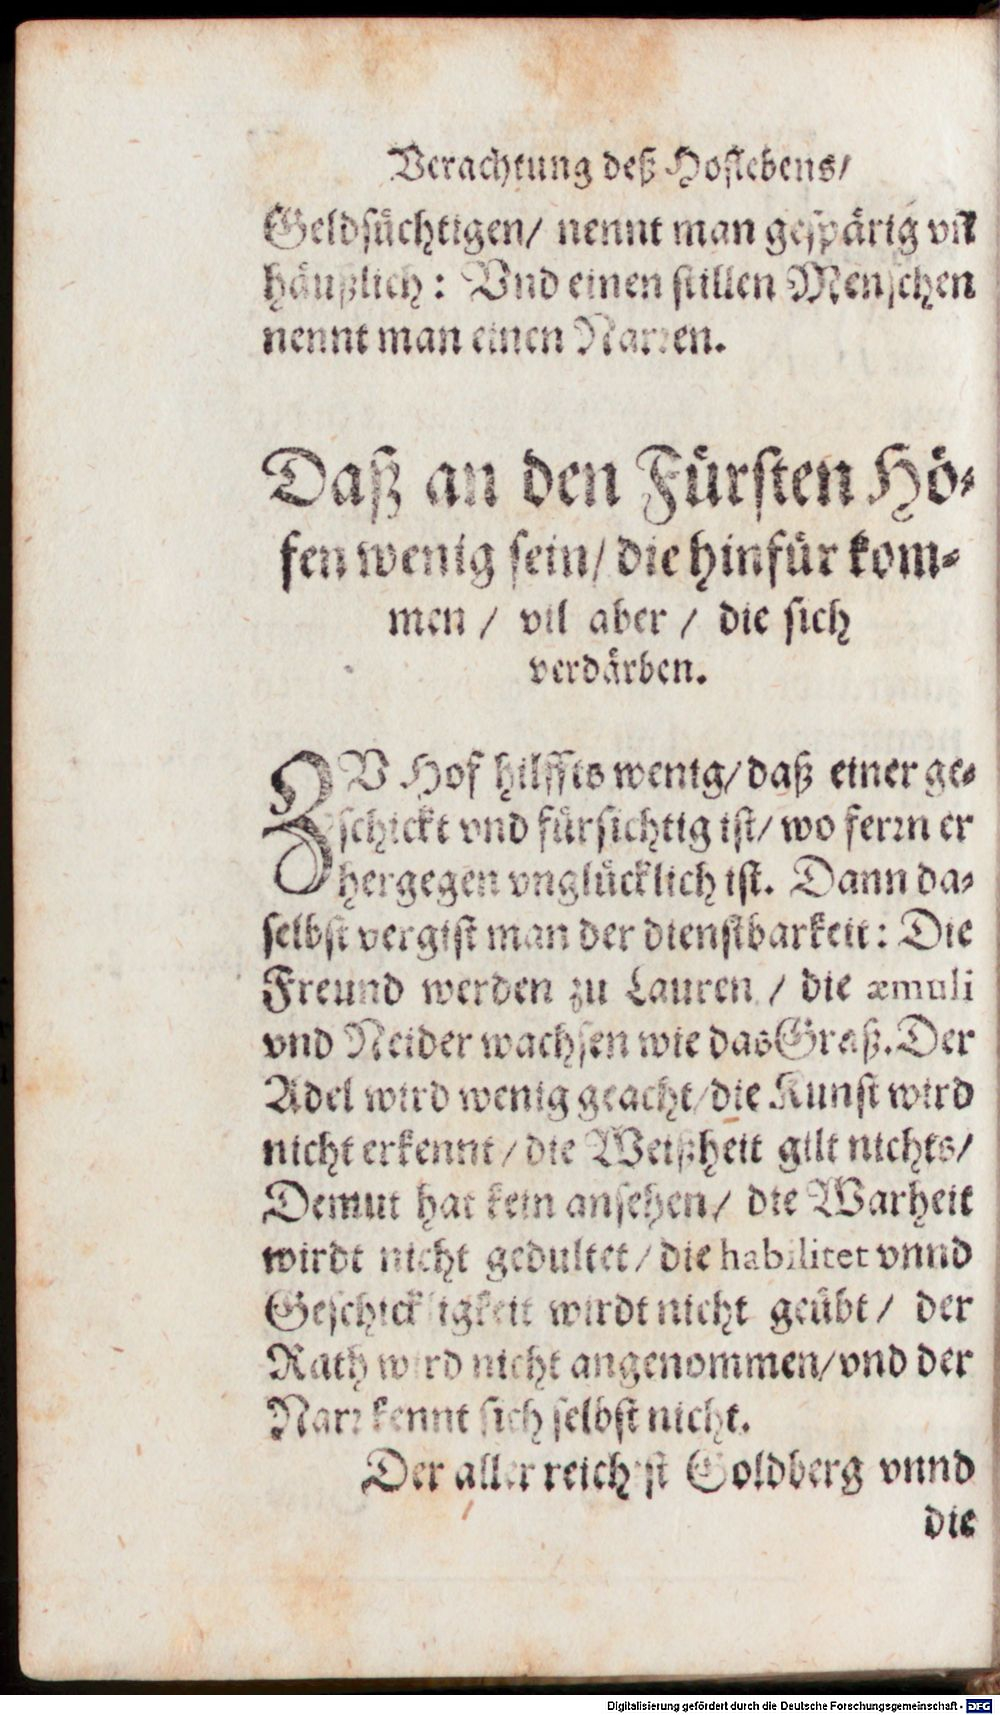 Verachtung deß Hoflebens/
Geldsüchtigen/ nennt man gespärig vñ
häußlich: Vnd einen stillen Menschen
nennt man einen Narren.
Daß an den Fürsten Hö-
fen wenig sein/ die hinfür kom-
men / vil aber / die sich
verdärben.
ZV Hof hilffts wenig/ daß einer ge-
schickt vnd fürsichtig ist/ wo ferrn er
hergegen vnglücklich ist. Dann da-
selbst vergist man der dienstbarkeit: Die
Freund werden zu Lauren / die æmuli
vnd Neider wachsen wie das Graß. Der
Adel wird wenig geacht/ die Kunst wird
nicht erkennt / die Weißheit gilt nichts/
Demut hat kein ansehen/ die Warheit
wirdt nicht gedultet / die habilitet vnnd
Geschickligkeit wirdt nicht geübt / der
Rath wird nicht angenommen/ vnd der
Narr kennt sich selbst nicht.
Der aller reichist Goldberg vnnd
die
Digitalisierung gefördert durch die Deutsche Forschungsgemeinschaft - DFG